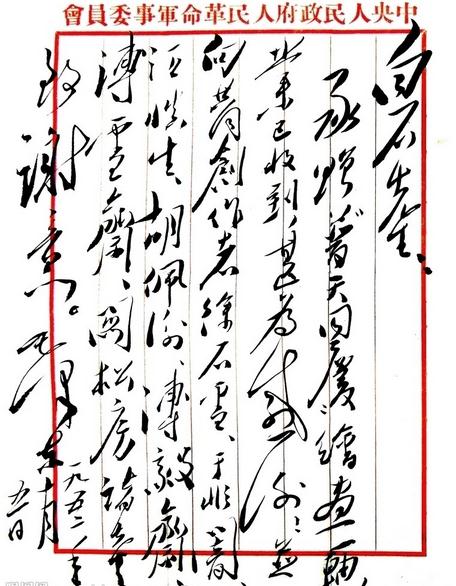 中央人民政府人民革命軍事委員會
白石先生、
承贈普天同慶、繪畫一軸
業已收到，甚為感謝；並
向共同創作者徐石雪、于非闇、
汪慎生、胡佩衡、溥毅齋、
溥雪齋、關松房諸先生
致謝意。毛澤東
一九五二年
十月五日